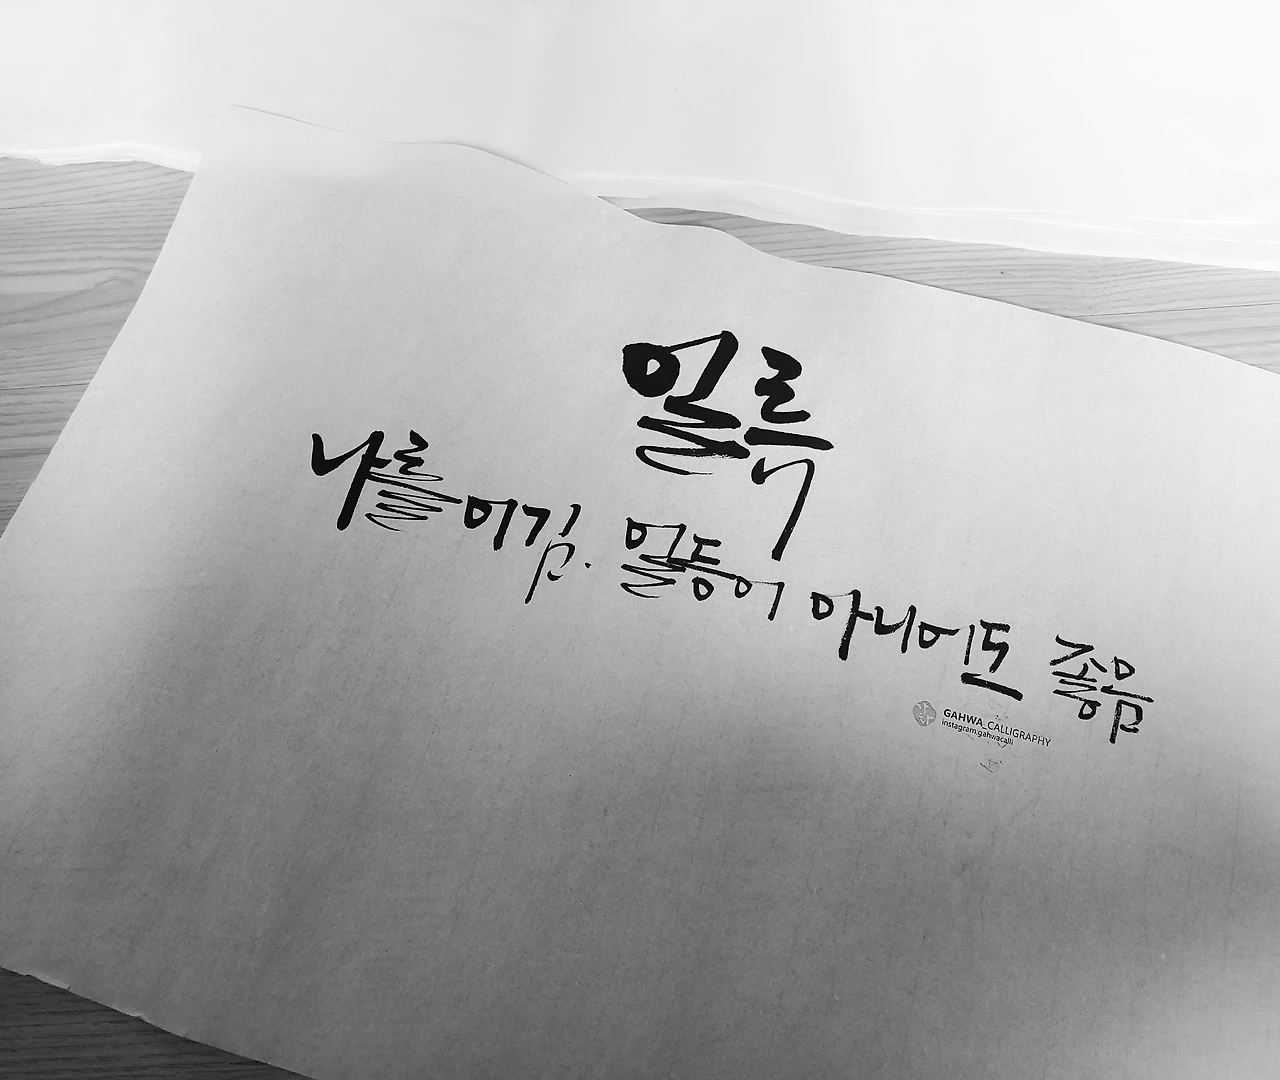 일류
나를 이김. 일등이 아니어도 좋음
GAHWA_CALLIGRAPHY
instagram.gahwacalli